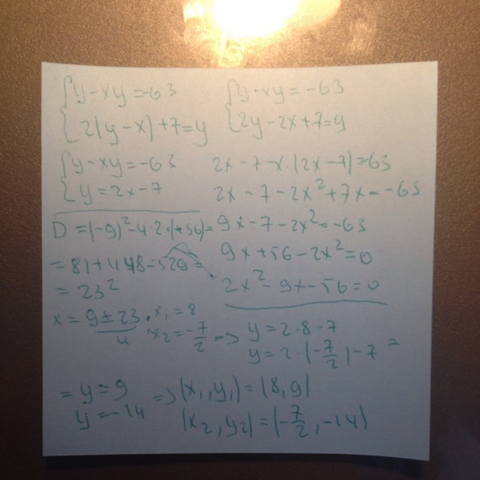 {y-xy=-63 {y-xy=-63
{2(y-x)+7=y {2y-2x+7=y
{y-xy=-63 2x-7-x·(2x-7)=-63
{y=2x-7 2x-7-2x²+7x=-63
D=(-9)²-4·2·(-56)= 9x-7-2x²=-63
=81+448=529= 9x+56-2x²=0
=23² 2x²-9x-56=0
x=9±23/4 x₁=8
x₂=-7/2 => y=2·8-7
y=2·(-7/2)-7 =
=y=9 => (x₁,y₁)=(8,9)
y=-14 (x₂,y₂)=(-7/2,-14)